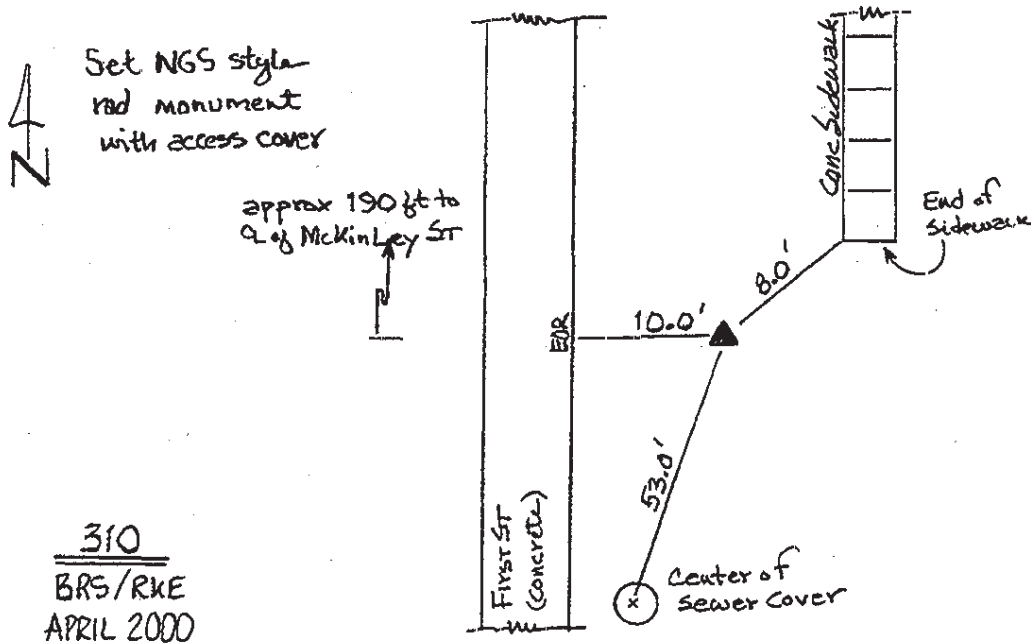 Set NGS style
rod monument
with access cover
N
approx 190 ft to
℄ of McKinley ST
Conc Sidewalk
End of
Sidewalk
8.0'
10.0'
EOR
53.0'
First ST
(concrete)
Center of
sewer cover
x
310
BRS/RKE
APRIL 2000